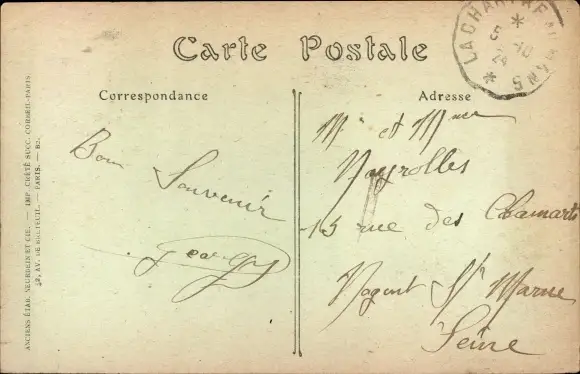 Carte Postale
Correspondance
Bon Souvenir
Adresse
Mr et Mme
Nayrolles
15 rue des Chamarts
Nogent S/ Marne
Seine
ANCIENS ÉTAB. NEURDEIN ET CIE. — IMP. CRÉTÉ SUCC. CORBEIL-PARIS.
52, AV. DE BRETEUIL. — PARIS. —
5 -10
24